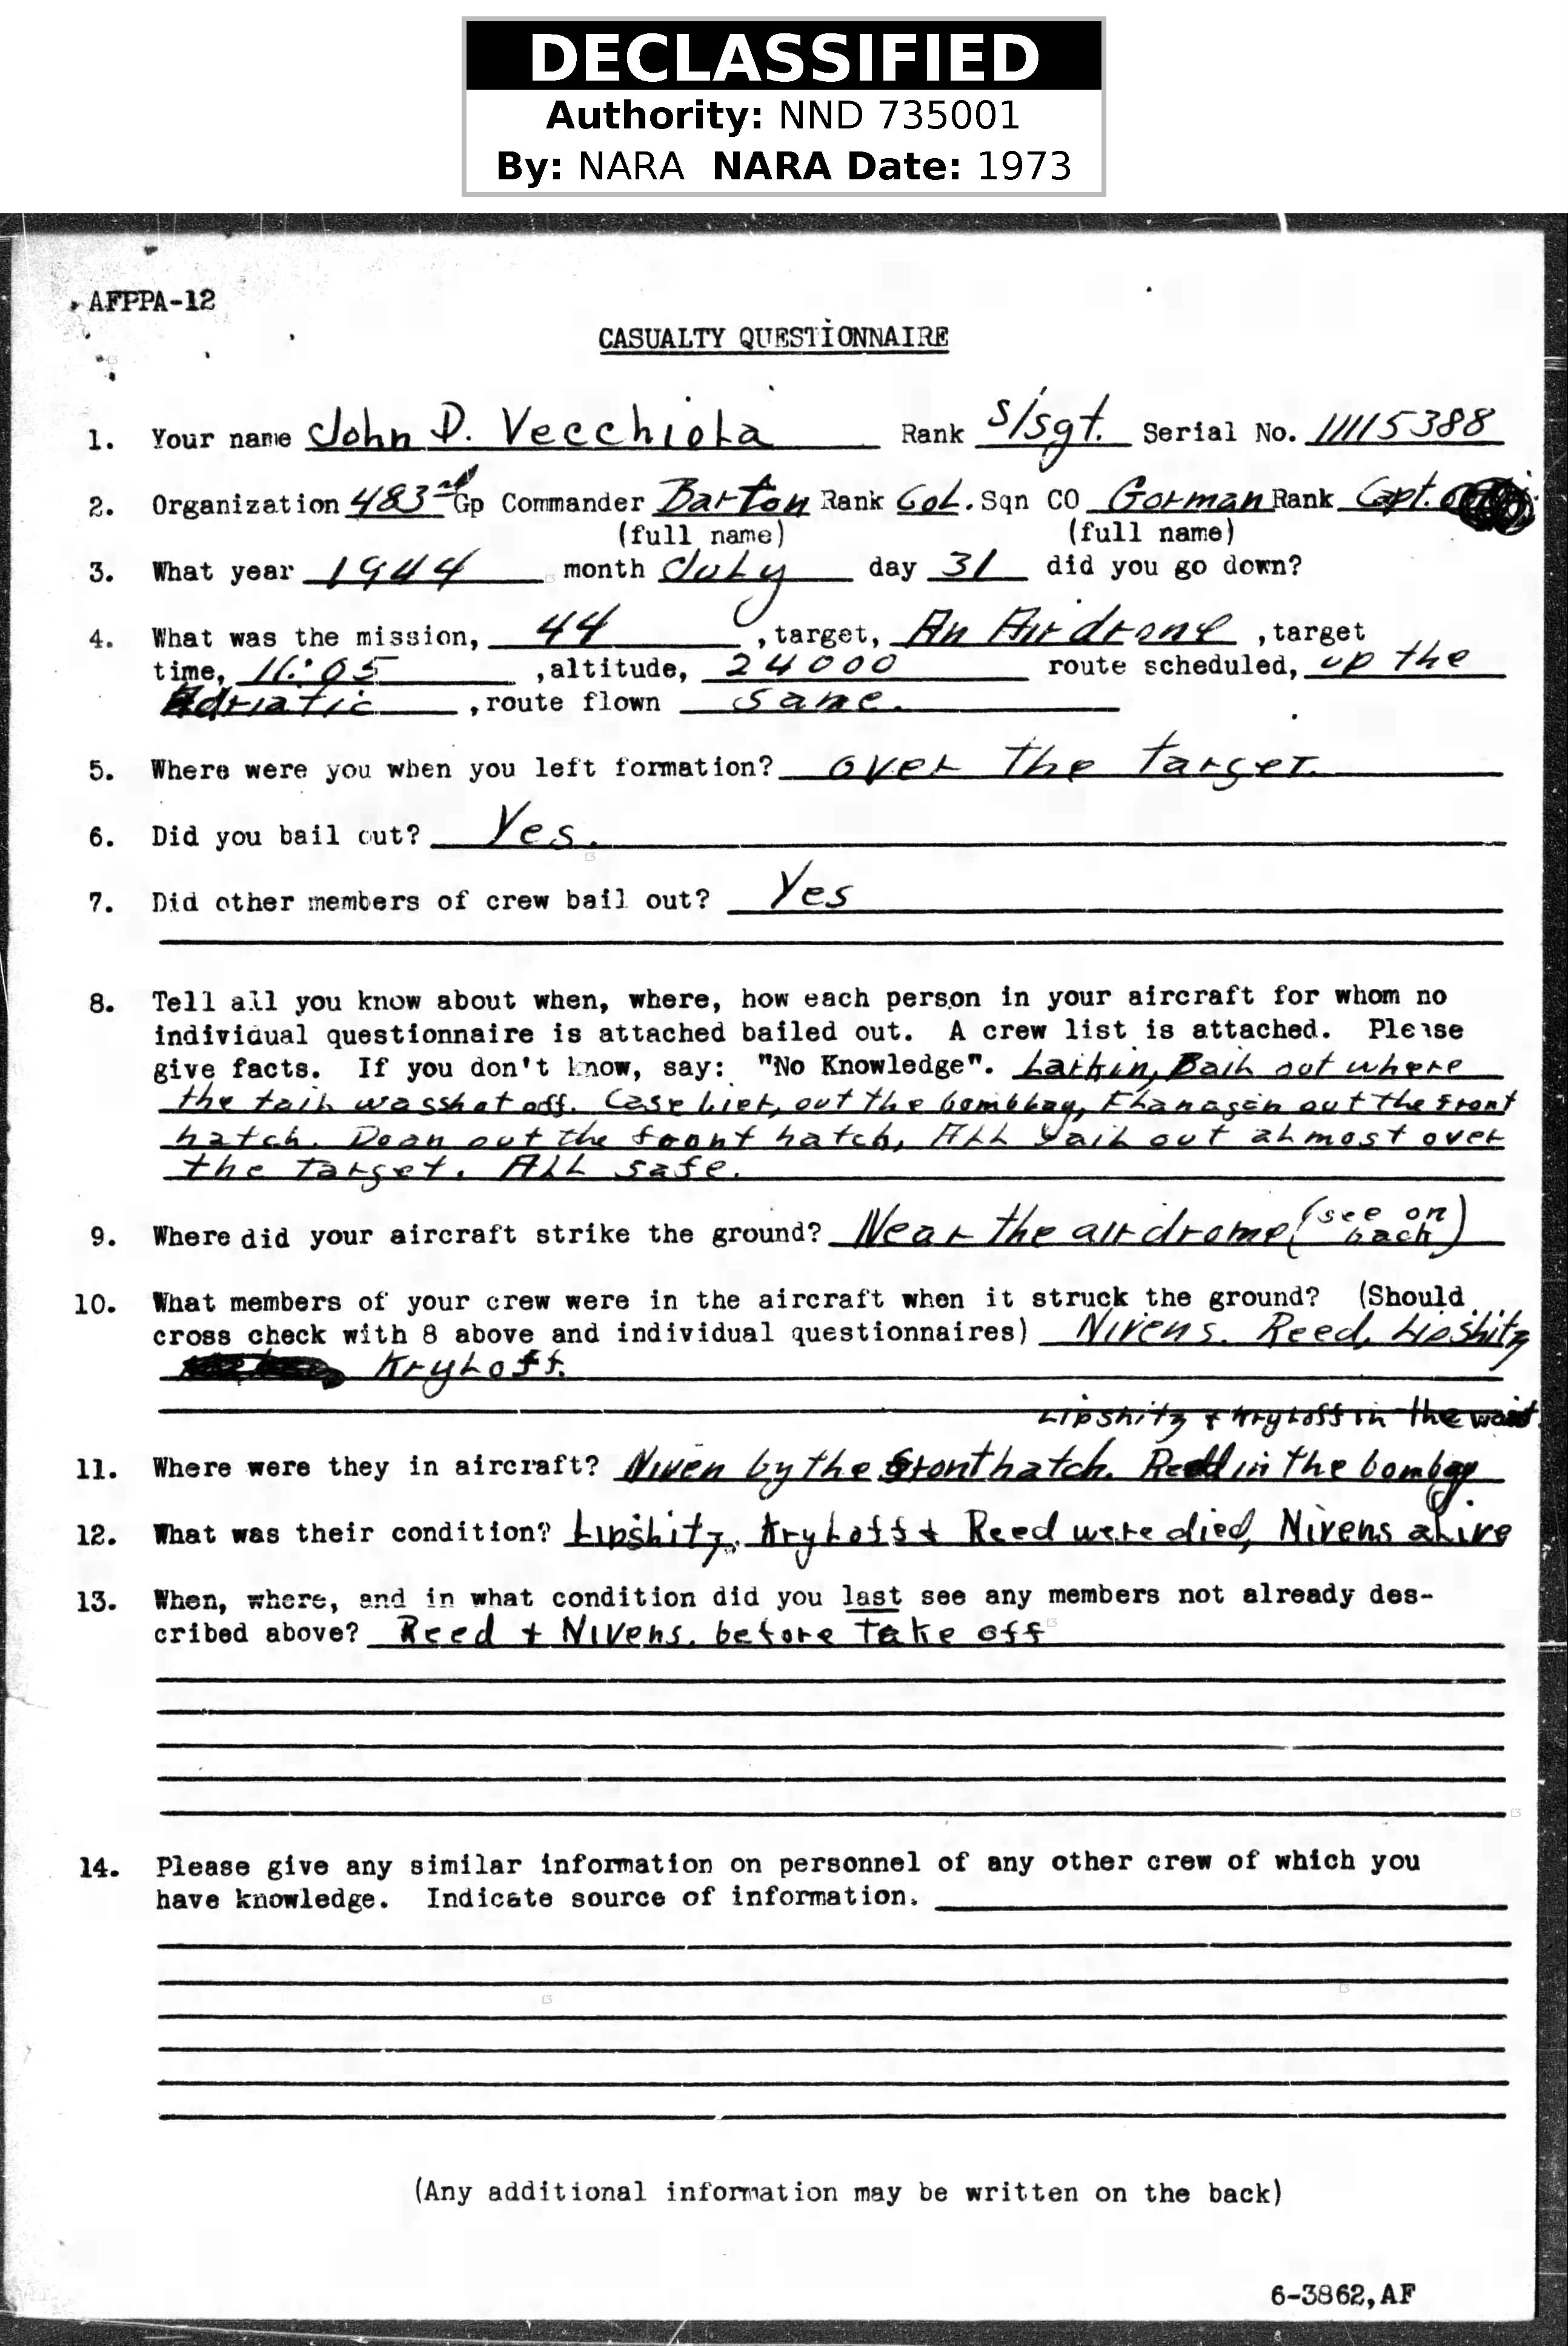 DECLASSIFIED
Authority: NND 735001
By: NARA NARA Date: 1973
AFPPA-12
CASUALTY QUESTIONNAIRE
1. Your name John D. Vecchiola Rank S/Sgt. Serial No. 11115388
2. Organization 483rd Gp Commander Barton Rank Col. Sqn CO Gorman Rank Capt.
(full name) (full name)
3. What year 1944 month July day 31 did you go down?
4. What was the mission, 44 , target, An Airdrone , target
time, 11:05 , altitude, 24000 route scheduled, up the
Adriatic , route flown same.
5. Where were you when you left formation? over the target.
6. Did you bail out? Yes.
7. Did other members of crew bail out? Yes
8. Tell all you know about when, where, how each person in your aircraft for whom no
individual questionnaire is attached bailed out. A crew list is attached. Please
give facts. If you don't know, say: "No Knowledge". Larkin, Bail out where
the tail was shot off. Caselier, out the bombbay, Flanagan out the front
hatch. Doan out the front hatch, All bail out almost over
the target. All safe.
9. Where did your aircraft strike the ground? Near the airdrome (see on back)
10. What members of your crew were in the aircraft when it struck the ground? (Should
cross check with 8 above and individual questionnaires) Nivens. Reed, Lipshitz
Kryloff.
Lipshitz & Kryloff in the waist.
11. Where were they in aircraft? Niven by the front hatch. Reed in the bombay
12. What was their condition? Lipshitz, Kryloff & Reed were died, Nivens alive
13. When, where, and in what condition did you last see any members not already des-
cribed above? Reed & Nivens, before take off
14. Please give any similar information on personnel of any other crew of which you
have knowledge. Indicate source of information.
(Any additional information may be written on the back)
6-3862, AF